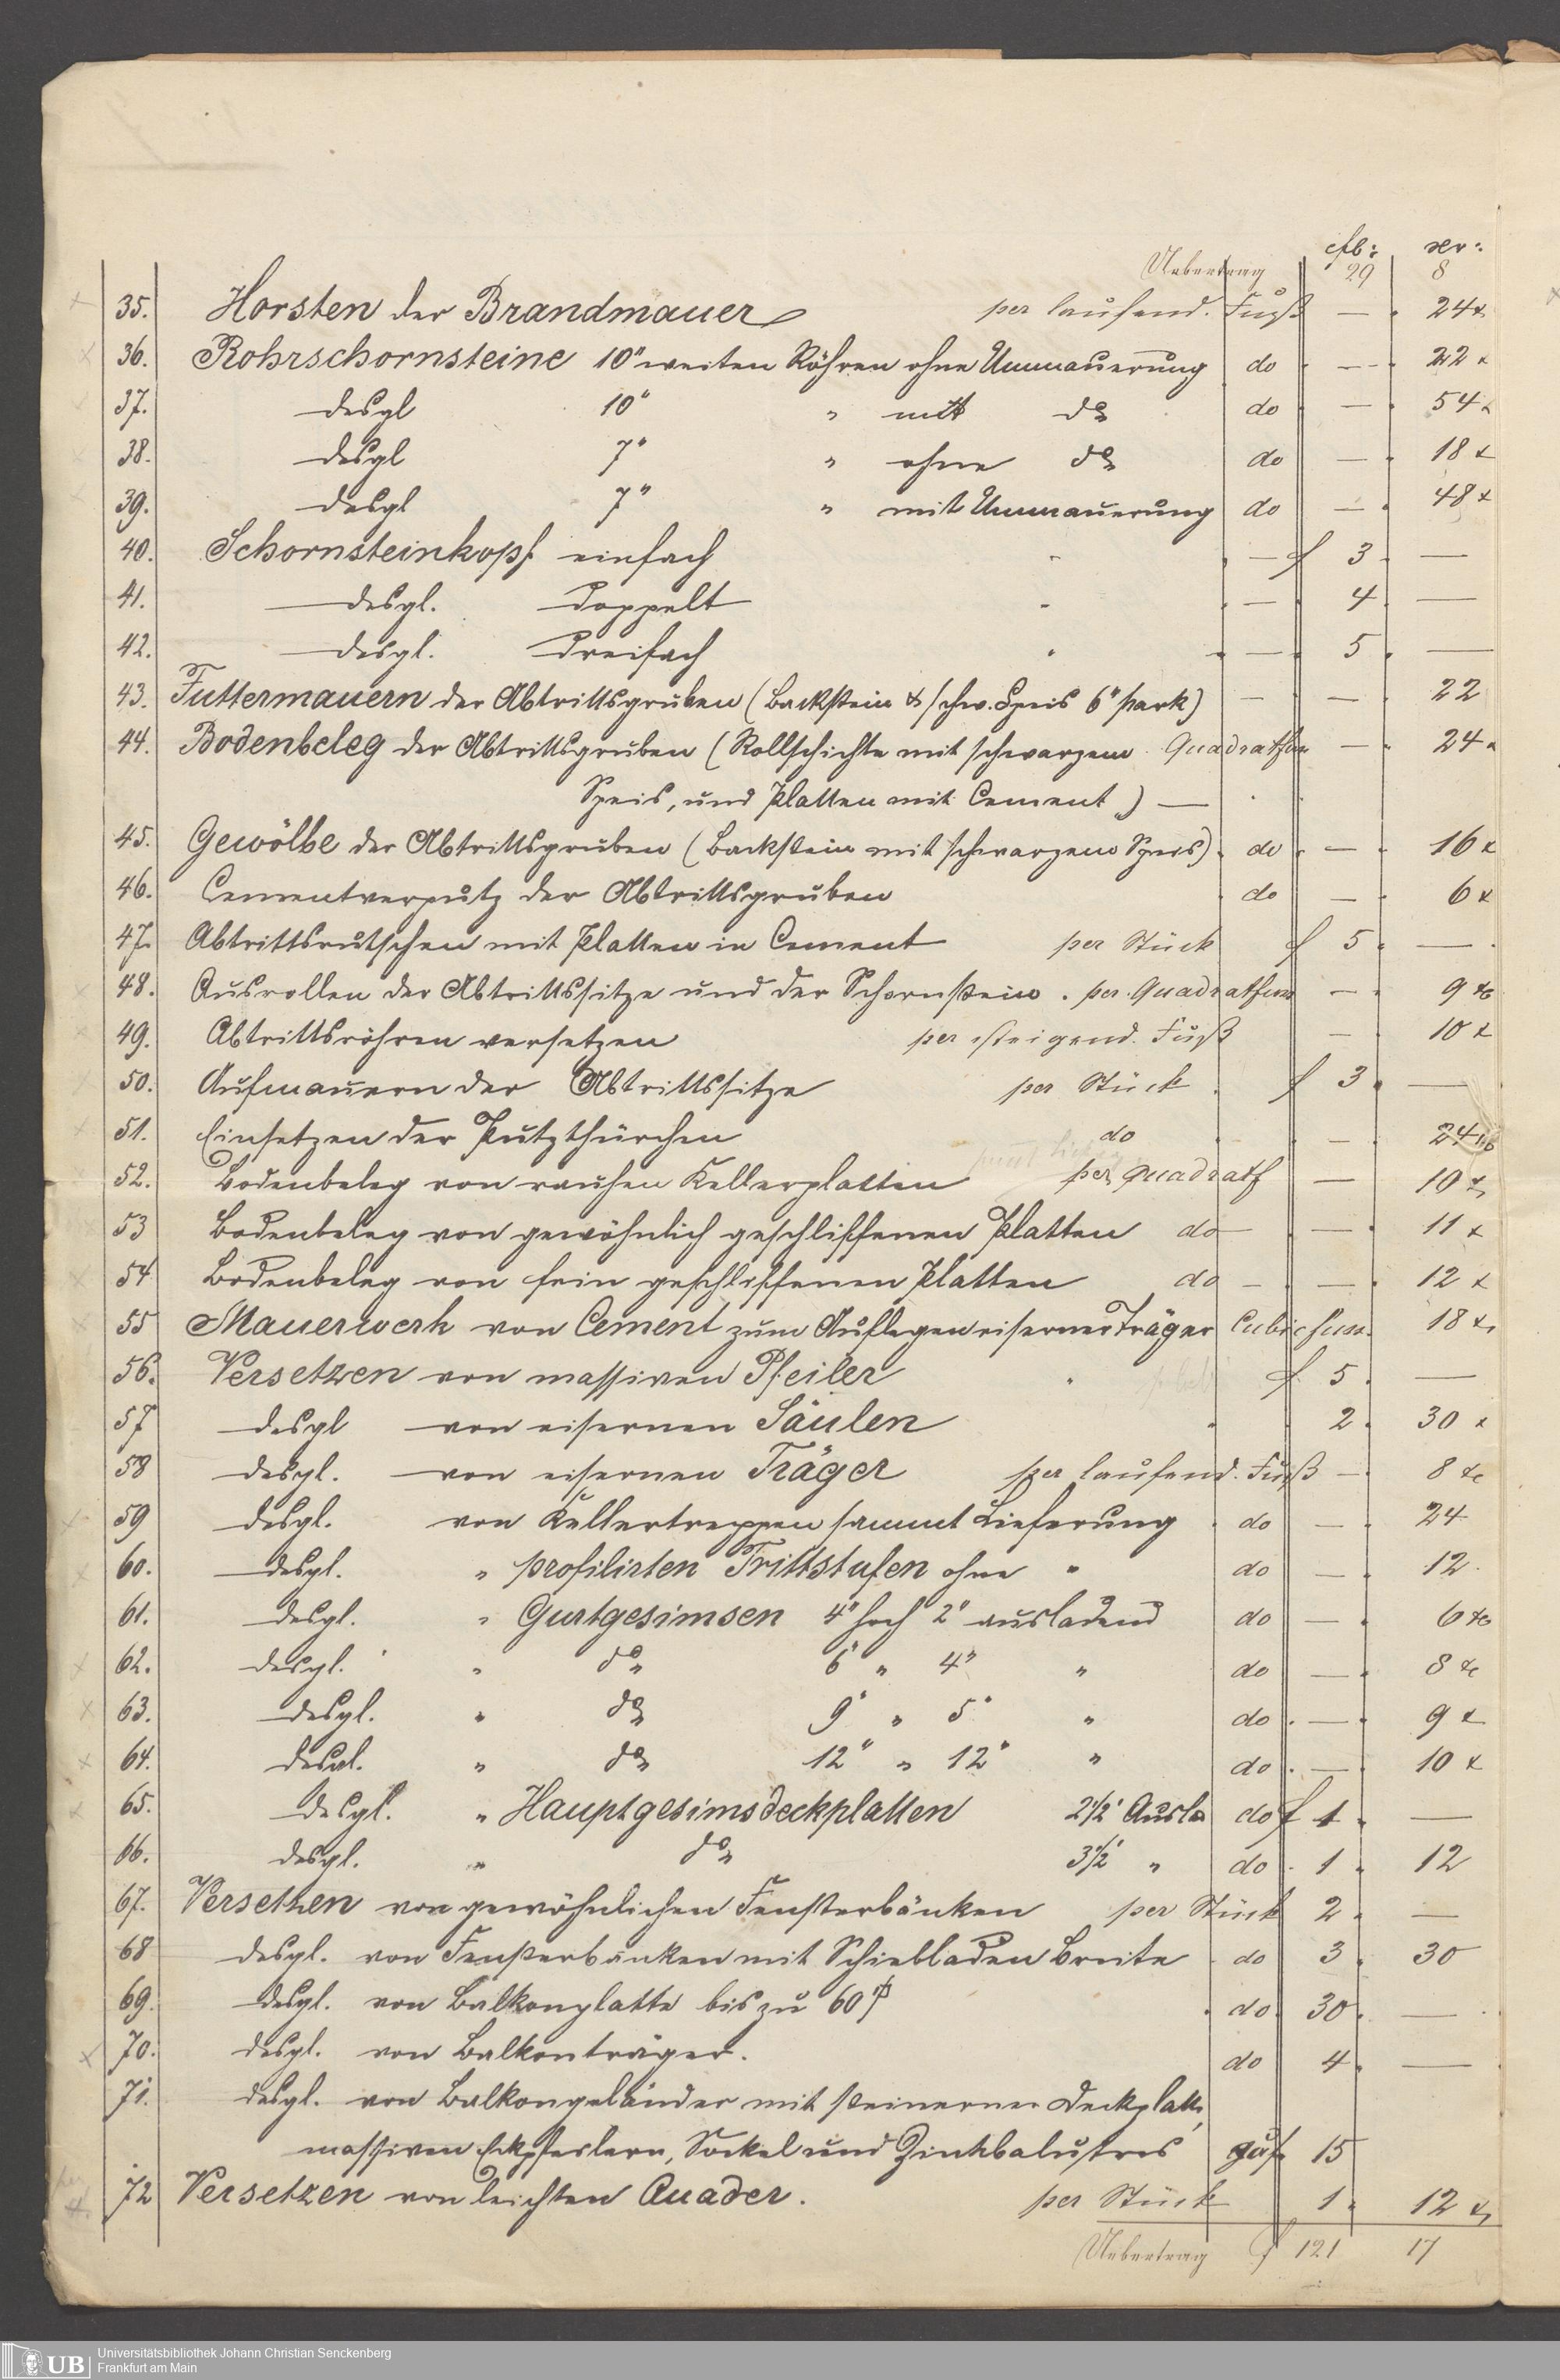 fl: xr:
Uebertrag 29 8
35. Horsten der Brandmauer per laufend. Fuß — 24 x
36. Rohrschornsteine 10" weiten Röhren ohne Ummauerung do — 22 x
37. desgl 10" " mit do do — 54 x
38. desgl 7" " ohne do do — 18 x
39. desgl 7" " mit Ummauerung do — 48 x
40. Schornsteinkopf einfach " — f 3 —
41. desgl. doppelt " — 4 —
42. desgl. dreifach " — 5 —
43. Futtermauern der Abtrittsgruben (Backstein & schw. Speis 6" stark) — — 22
44. Bodenbeleg der Abtrittsgruben (Rollschichte mit schwarzem Quadratfuss — 24 x
Speis, und Platten mit Cement) —
45. Gewölbe der Abtrittsgruben (Backstein mit schwarzem Speis) do — 16 x
46. Cementverputz der Abtrittsgruben do — 6 x
47. Abtrittsrutschen mit Platten in Cement per Stück f 5 —
48. Ausrollen der Abtrittssitze und der Schornstein . per Quadratfuss — 9 x
49. Abtrittsröhren versetzen per steigend. Fuß — 10 x
50. Aufmauern der Abtrittssitze per Stück f 3 —
51. Einsetzen der Putzthürchen do — 24 x
52. Bodenbeleg von rauhen Kellerplatten per Quadratf — 10 x
53 Bodenbeleg von gewöhnlich geschliffenen Platten do — — 11 x
54 Bodenbeleg von fein geschliffenen Platten do — — 12 x
55 Mauerwerk von Cement zum Auflegen eiserner Träger Cubicfuss 18 x
56. Versetzen von massiven Pfeiler " f 5 —
57 desgl von eisernen Säulen " 2 30 x
58 desgl. von eisernen Träger per laufend. Fuß — 8 x
59 desgl. von Kellertreppen sammt Lieferung do — 24
60. desgl. " profilirten Trittstufen ohne " do — 12
61. desgl. " Gurtgesimsen 4" hoch 2" ausladend do — 6 x
62. desgl. " do 6" " 4" " do — 8 x
63. desgl. " do 9" " 5" " do — 9 x
64. desgl. " do 12" " 12" " do — 10 x
65. desgl. " Hauptgesimsdeckplatten 2 1/2' Ausla do f 1 —
66. desgl. " do 3 1/2' " do 1 12
67. Versetzen von gewöhnlichen Fensterbänken per Stück 2 —
68 desgl. von Fensterbänken mit Schiebladen Breite do 3 30
69. desgl. von Balkonplatte bis zu 60 do 30 —
70. desgl. von Balkonträger. do 4 —
71. desgl. von Balkongeländer mit steinerner Deckplatte,
massiven Eckpfeilern, Sockel und Zinkbalustres 15
72 Versetzen von leichten Quader. per Stück 1 12 x
Uebertrag f 121 17
UB Universitätsbibliothek Johann Christian Senckenberg
Frankfurt am Main